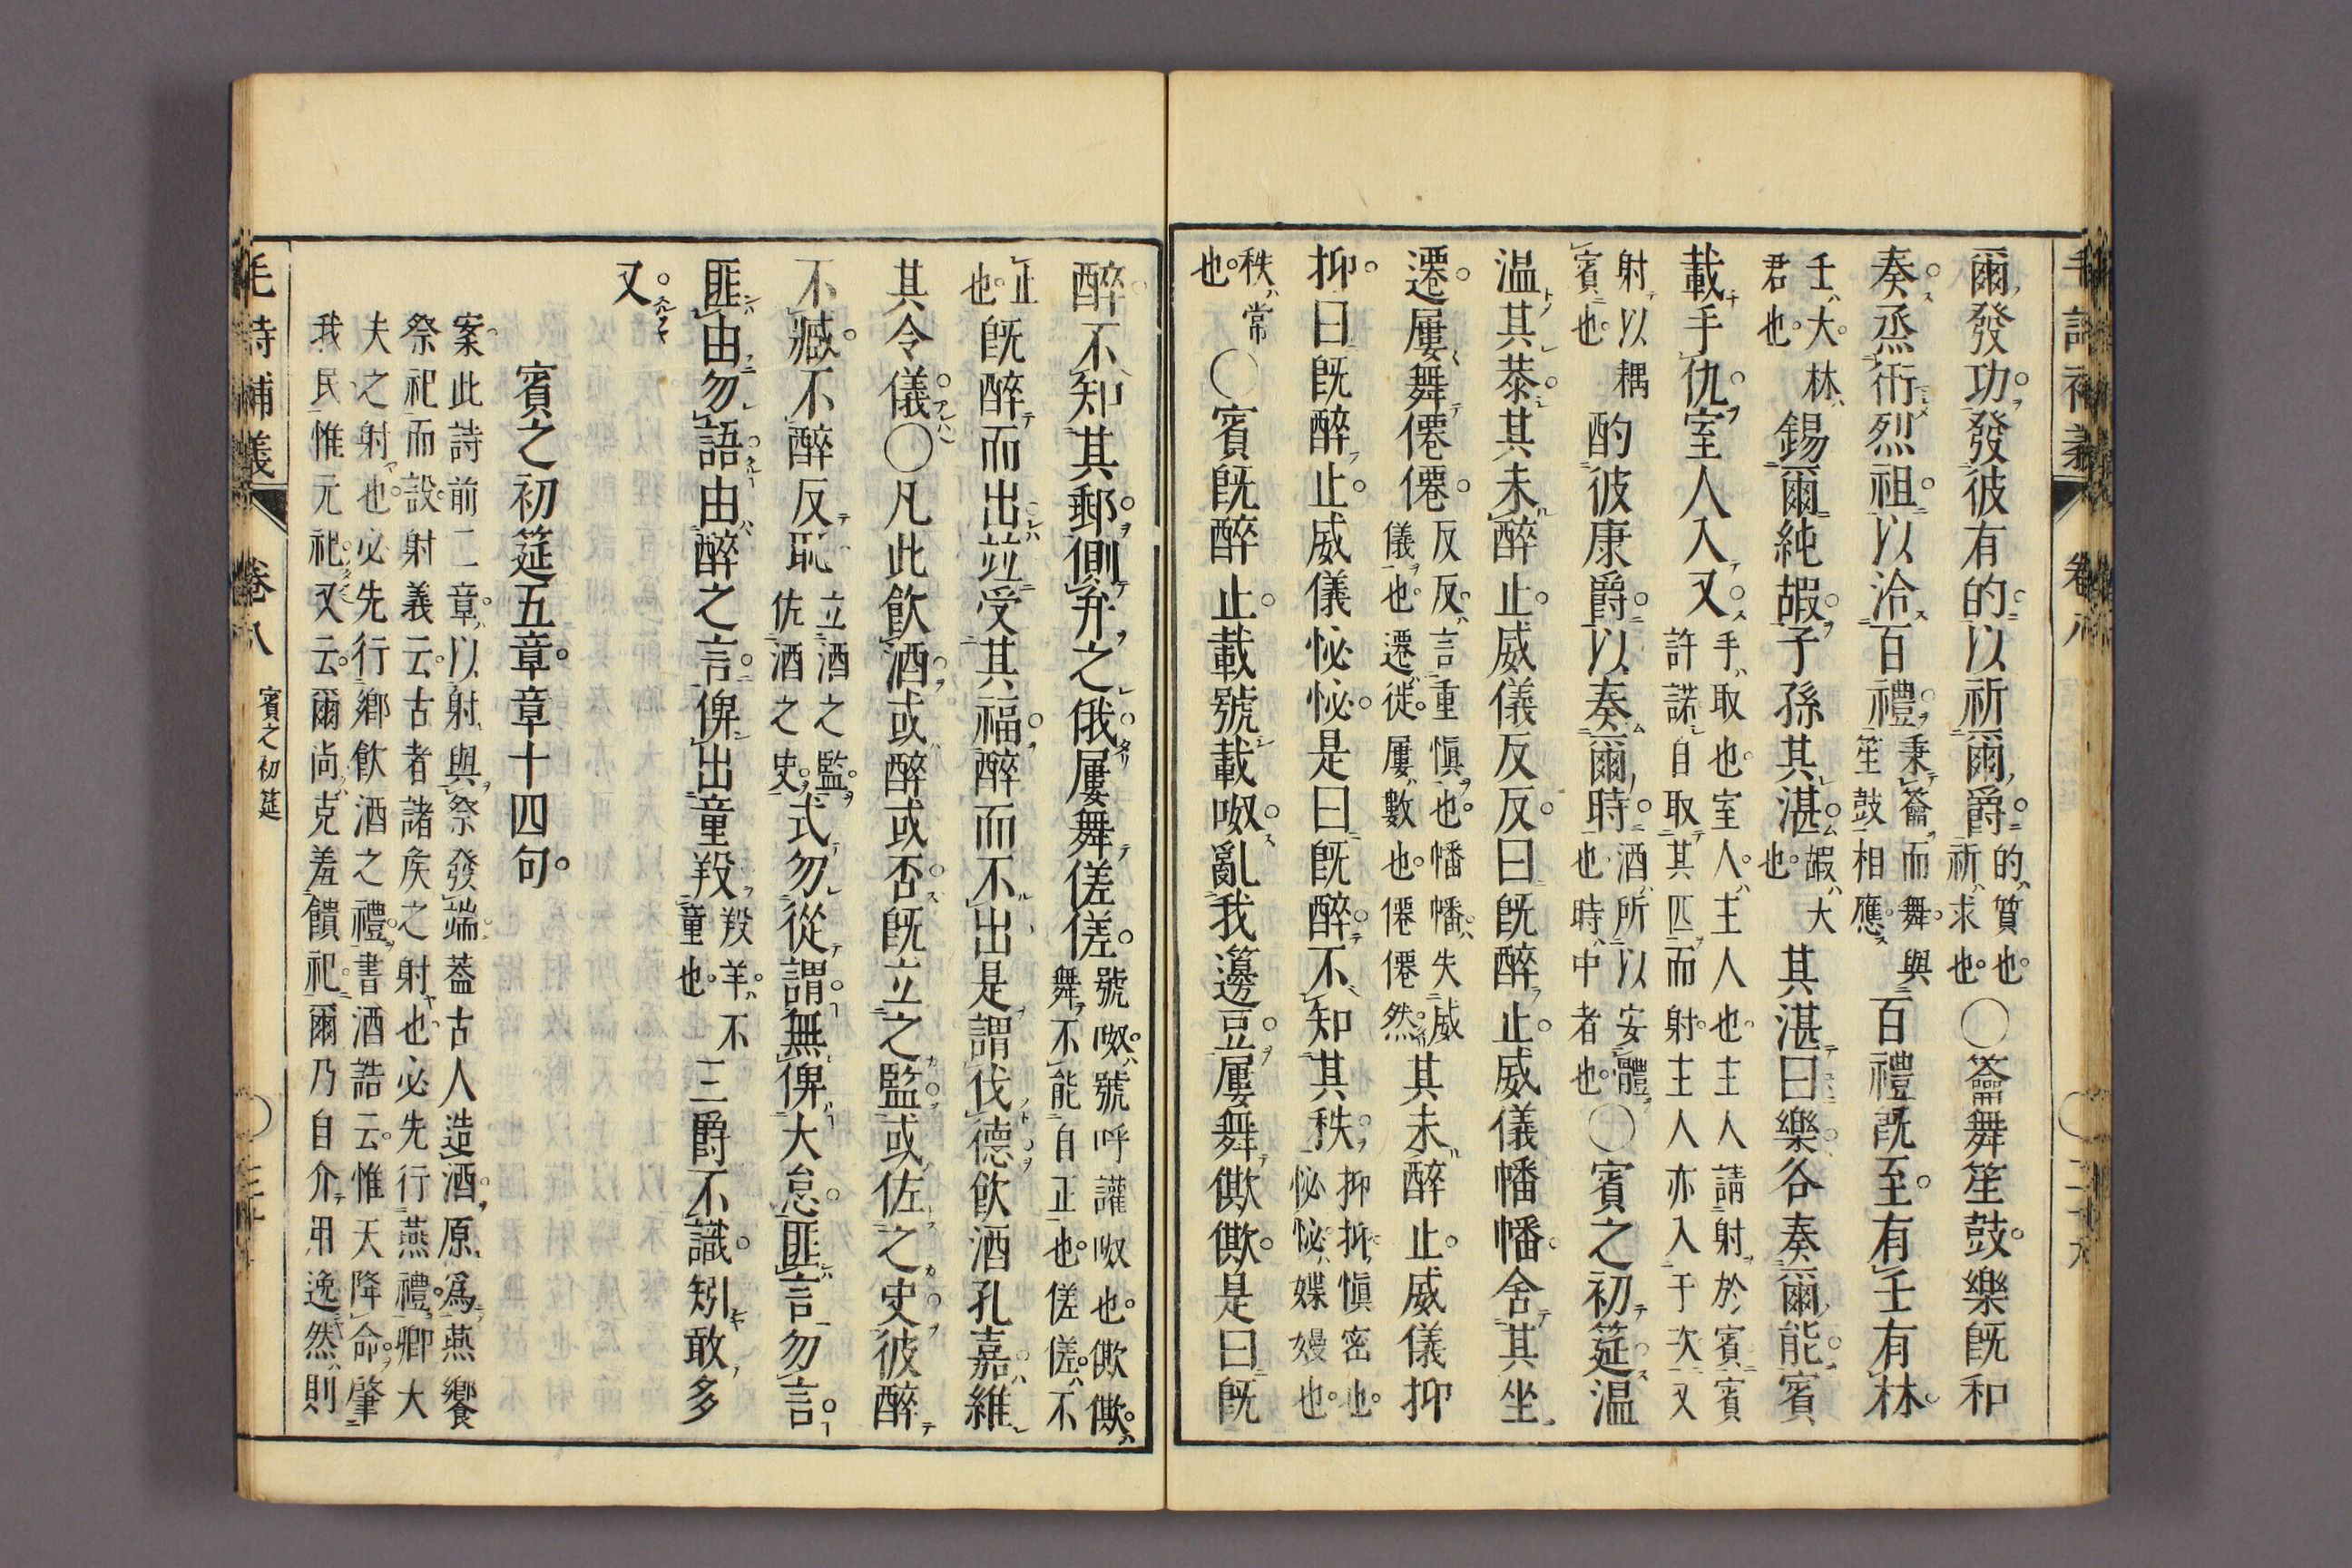 爾發功發彼有的以祈爾爵的質也祈求也〇籥舞笙鼓樂既和
奏烝衎烈祖以洽百禮秉籥而舞與笙鼓相應百禮既至有壬有林
壬大林君也錫爾純嘏子孫其湛嘏大也其湛曰樂各奏爾能賓
載手仇室人入又手取也室人主人也主人請射於賓賓許諾自取其匹而射主人亦入于次又
射以耦賓也酌彼康爵以奏爾時酒所以安體也時中者也〇賓之初筵温
温其恭其未醉止威儀反反曰既醉止威儀幡幡舍其坐
遷屢舞僊僊反反言重愼也幡幡失威儀也遷徙屢數也僊僊然其未醉止威儀抑
抑曰既醉止威儀怭怭是曰既醉不知其秩抑抑愼密也怭怭媟嫚也
秩常也〇賓既醉止載號載呶亂我籩豆屢舞僛僛是曰既
醉不知其郵側弁之俄屢舞傞傞號呶號呼讙呶也僛僛舞不能自正也傞傞不
止也既醉而出竝受其福醉而不出是謂伐德飲酒孔嘉維
其令儀〇凡此飲酒或醉或否既立之監或佐之史彼醉
不臧不醉反恥立酒之監佐酒之史式勿從謂無俾大怠匪言勿言
匪由勿語由醉之言俾出童羖羖羊不童也三爵不識矧敢多
又
賓之初筵五章章十四句
案此詩前二章以射與祭發端葢古人造酒原爲燕饗
祭祀而設射義云古者諸矦之射也必先行燕禮卿大
夫之射也必先行鄉飲酒之禮書酒誥云惟天降命肇
我民惟元祀又云爾尚克羞饋祀爾乃自介用逸然則
毛詩補義 卷八 賓之初筵